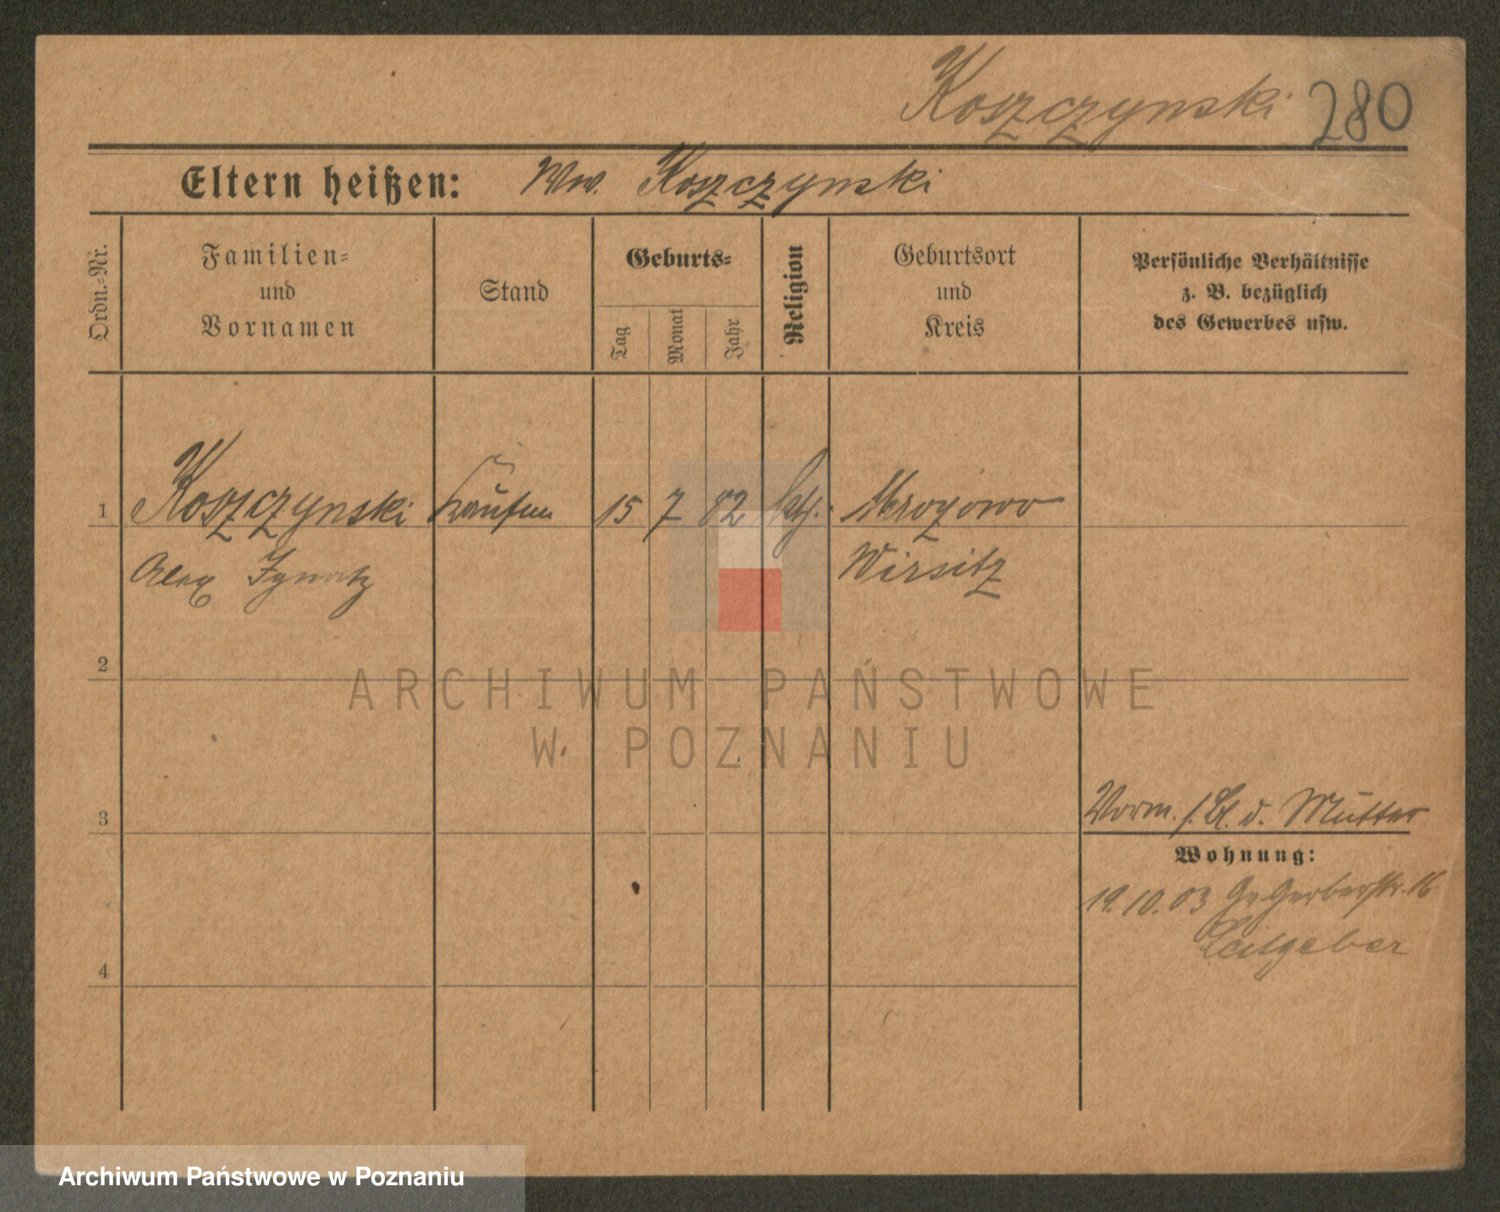 Koszczynski 280
Eltern heißen: Ww. Koszczynski
Ordn.-Nr.
Familien-
und
Vornamen
Stand
Geburts-
Tag
Monat
Jahr
Religion
Geburtsort
und
Kreis
Persönliche Verhältnisse
z. B. bezüglich
des Gewerbes usw.
1 Koszczynski 15 7 82 kath. Mrozowo
Alex Ignatz Wirsitz
2
ARCHIWUM PAŃSTWOWE
W POZNANIU
3
Vorm. s. Bl. d. Mutter
Wohnung:
19.10.03 Gr. Gerberstr. 16
Leitgeber
4
Archiwum Państwowe w Poznaniu